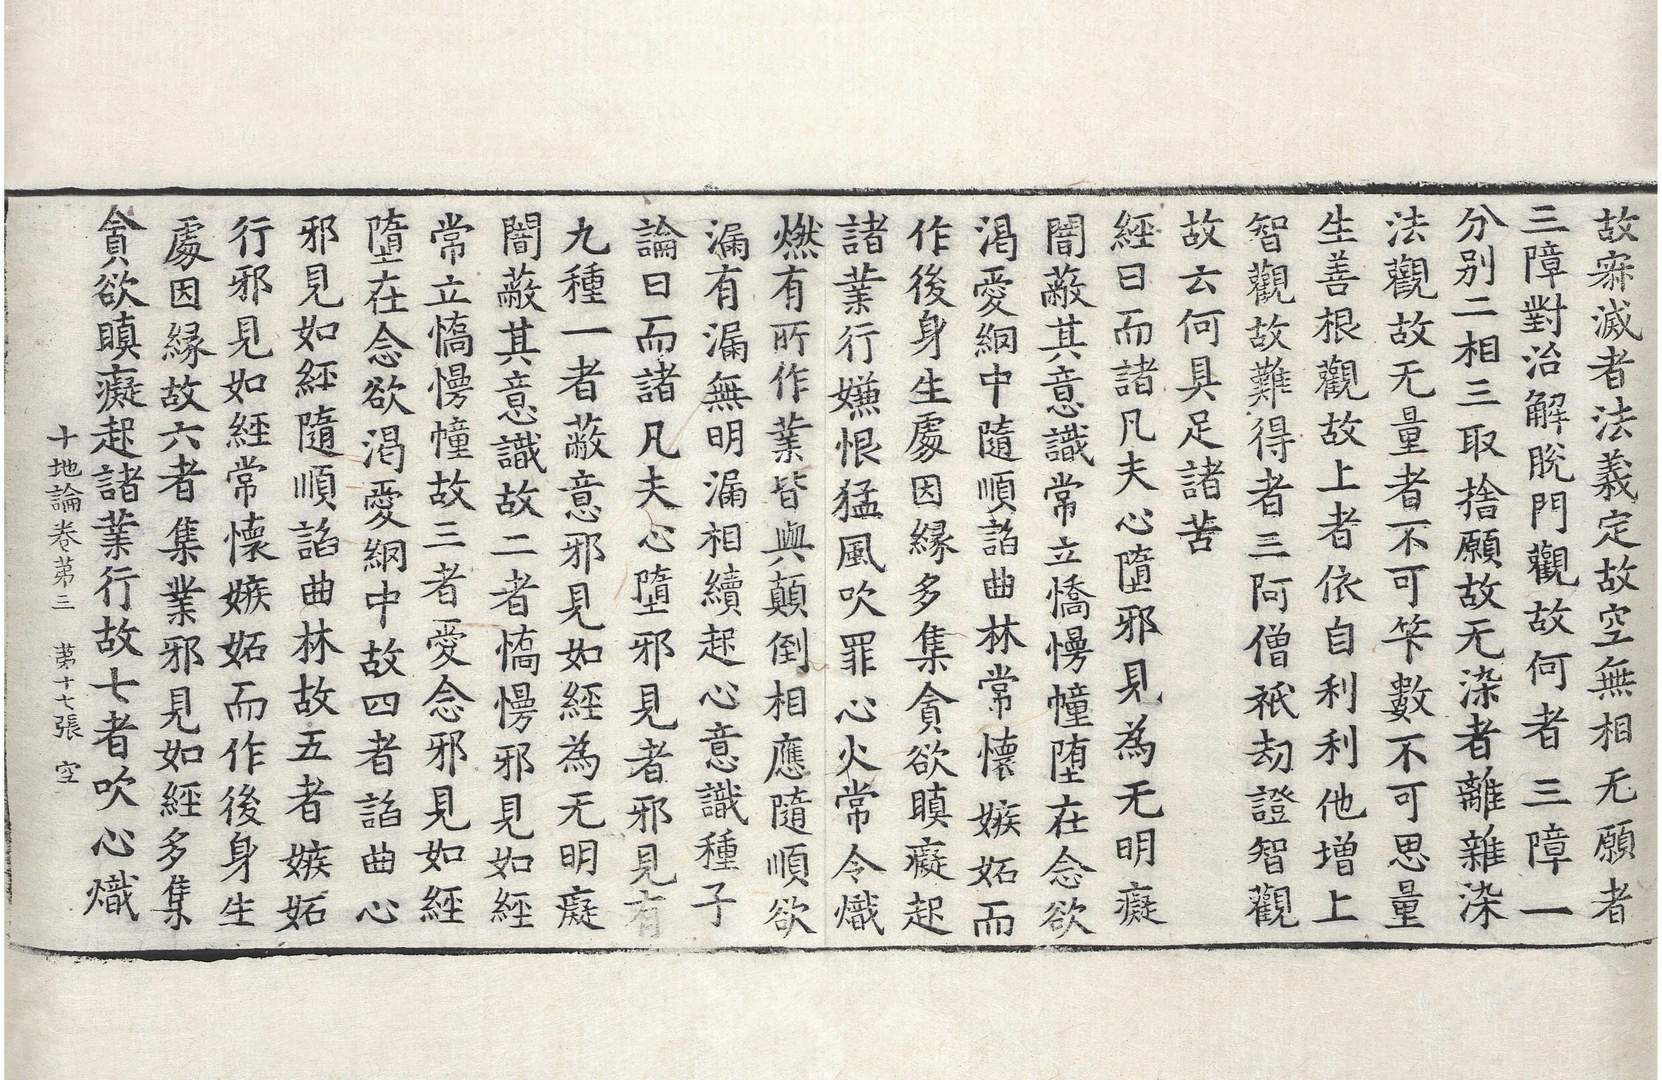 故寂滅者法義定故空無相无願者
三障對治解脫門觀故何者三障一
分别二相三取捨願故无染者離雜染
法觀故无量者不可笇數不可思量
生善根觀故上者依自利利他增上
智觀故難得者三阿僧祇劫證智觀
故云何具足諸苦
經曰而諸凡夫心墮邪見為无明癡
闇蔽其意識常立憍慢幢墮在念欲
渴愛網中隨順諂曲林常懷嫉妬而
作後身生處因緣多集貪欲瞋癡起
諸業行嫌恨猛風吹罪心火常令熾
燃有所作業皆與顛倒相應隨順欲
漏有漏無明漏相續起心意識種子
論曰而諸凡夫心墮邪見者邪見有
九種一者蔽意邪見如經為无明癡
闇蔽其意識故二者憍慢邪見如經
常立憍慢幢故三者愛念邪見如經
墮在念欲渴愛網中故四者諂曲心
邪見如經隨順諂曲林故五者嫉妬
行邪見如經常懷嫉妬而作後身生
處因緣故六者集業邪見如經多集
貪欲瞋癡起諸業行故七者吹心熾
十地論卷第三　第十七張　空